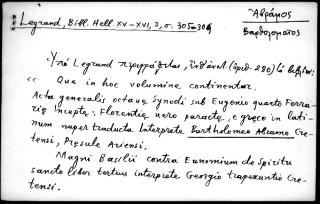 Ἀβράμος
Βαρθολομαῖος
Legrand, Bibl. Hell. XV-XVI, 3, σ. 305-306
Ὑπὸ Legrand περιγράφεται,
" Quae in hoc volumine continentur.
Acta generalis octavae Synodi sub Eugenio quarto Ferra-
riae incepta: Florentiae vero peracta, e graeco in lati-
num nuper traducta Interprete Bartholomeo Abramo Cre-
tensi, Praesule Ariensi.
Magni Basilii contra Eunomium de Spiritu
sancto liber tertius interprete Georgio trapezuntio Cre-
tensi.